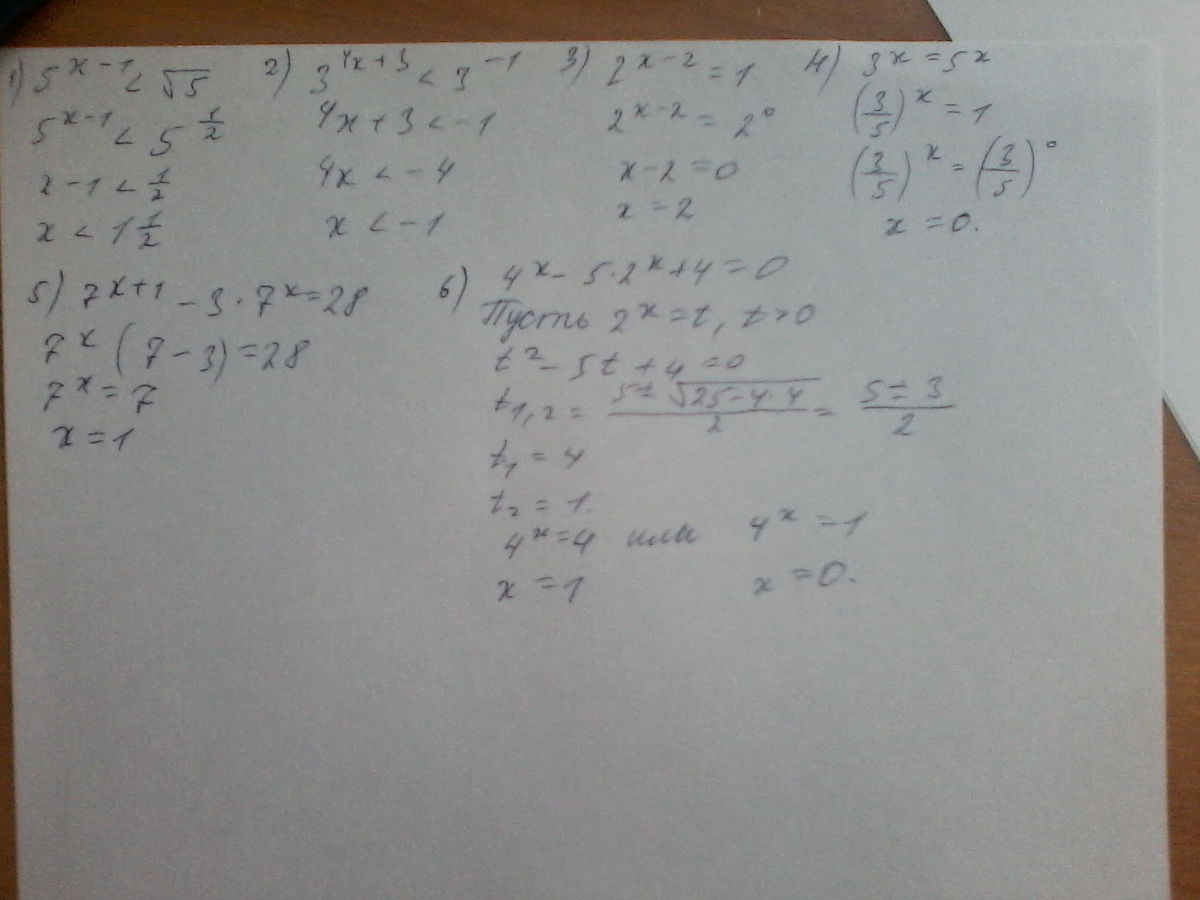 1) 5^{x-1} < √5
5^{x-1} < 5^{1/2}
x-1 < 1/2
x < 1 1/2
2) 3^{4x+3} < 3^{-1}
4x+3 < -1
4x < -4
x < -1
3) 2^{x-2} = 1
2^{x-2} = 2^0
x-2 = 0
x = 2
4) 3^x = 5^x
(3/5)^x = 1
(3/5)^x = (3/5)^0
x = 0.
5) 7^{x+1} - 3·7^x = 28
7^x (7-3) = 28
7^x = 7
x = 1
6) 4^x - 5·2^x + 4 = 0
Пусть 2^x = t, t > 0
t^2 - 5t + 4 = 0
t_{1,2} = (5±√(25-4·4))/2 = (5±3)/2
t_1 = 4
t_2 = 1.
4^x = 4 или 4^x = 1
x = 1 x = 0.